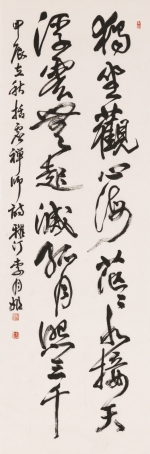 獨坐觀心海茫茫水接天
浮雲無起滅孤月照三千
甲辰立秋括虛禪師詩雅汀李月姬